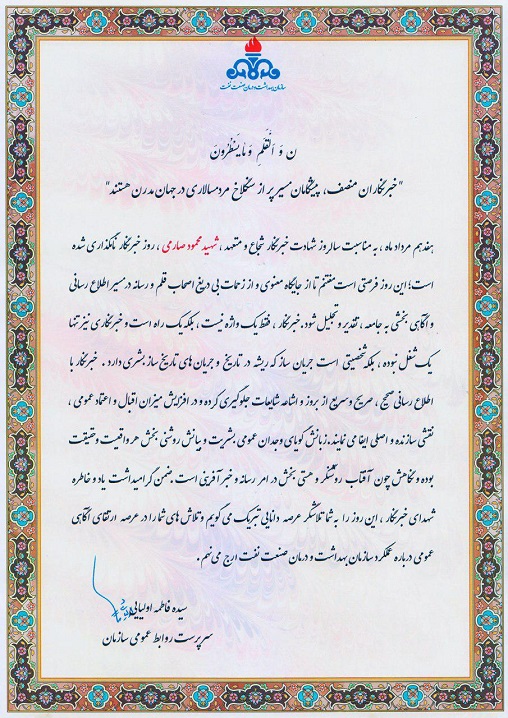 سازمان بهداشت و درمان صنعت نفت
ن وَ اَلْقَلَمِ وَ مَا یَسْطُرُونَ
"خبرنگاران منصف، پیشگامان مسیر پر از سنگلاخ مردمسالاری در جهان مدرن هستند"
هفدهم مرداد ماه ، به مناسبت سالروز شهادت خبرنگار شجاع و متعهد ، شهید محمود صارمی ، روز خبرنگار نامگذاری شده
است؛ این روز فرصتی است مغتنم تا از جایگاه معنوی و از زحمات بی دریغ اصحاب قلم و رسانه در مسیر اطلاع رسانی
و آگاهی بخشی به جامعه ، تقدیر و تجلیل شود. خبرنگار ، فقط یک واژه نیست ، بلکه یک راه است و خبرنگاری نیز تنها
یک شغل نبوده ، بلکه شخصیتی است جریان ساز که ریشه در تاریخ و جریان های تاریخ ساز بشری دارد . خبرنگار با
اطلاع رسانی صحیح ، صریح و سریع از بروز و اشاعه شایعات جلوگیری کرده و در افزایش میزان اقبال و اعتماد عمومی ،
نقشی سازنده و اصلی ایفا می نمایند. زبانش گویای وجدان عمومی بشریت و بیانش روشنی بخش هر واقعیت و حقیقت
بوده و نگاهش چون آفتاب روشنگر و هستی بخش در امر رسانه و خبر آفرینی است. ضمن گرامیداشت یاد و خاطره
شهدای خبرنگار ، این روز را به شما تلاشگر عرصه دانایی تبریک می گویم و تلاش های شما را در عرصه ارتقای آگاهی
عمومی درباره عملکرد سازمان بهداشت و درمان صنعت نفت ارج می نهم .
سیده فاطمه اولیایی
سرپرست روابط عمومی سازمان